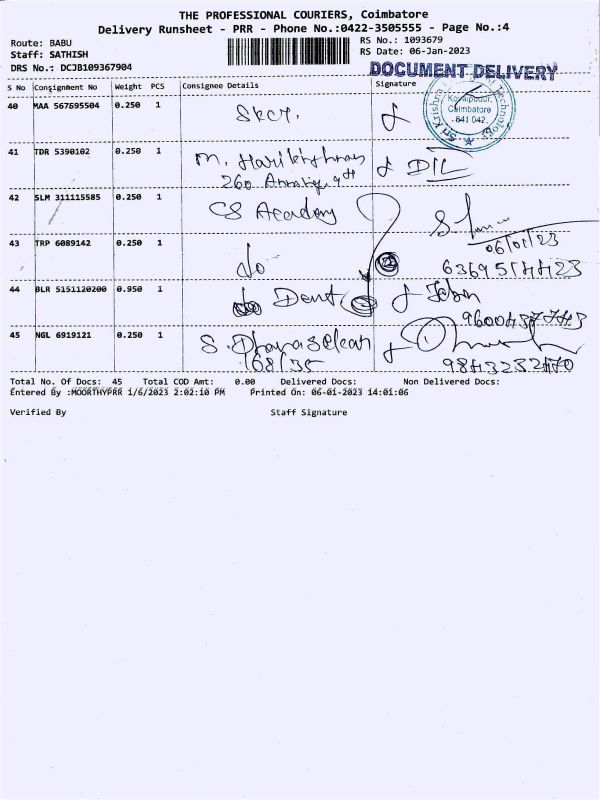 THE PROFESSIONAL COURIERS, Coimbatore
Delivery Runsheet - PRR - Phone No.:0422-3505555 - Page No.:4
Route: BABU
Staff: SATHISH
DRS No.: DCJB109367904
RS No.: 1093679
RS Date: 06-Jan-2023
DOCUMENT DELIVERY
S No Consignment No Weight PCS Consignee Details Signature
40 MAA 567695504 0.250 1 Skct.
Sri Krishna
Technology
Kovaipudur,
Coimbatore
641 042.
41 TDR 5390102 0.250 1 M. Harikrishnan
260
42 SLM 311115585 0.250 1 CS Academy
06/01/23
43 TRP 6089142 0.250 1 do
44 BLR 5151120200 0.950 1 do Dent
45 NGL 6919121 0.250 1 S. Dhanasekar
168/35 9843232470
Total No. Of Docs: 45 Total COD Amt: 0.00 Delivered Docs: Non Delivered Docs:
Entered By :MOORTHYPRR 1/6/2023 2:02:10 PM Printed On: 06-01-2023 14:01:06
Verified By Staff Signature